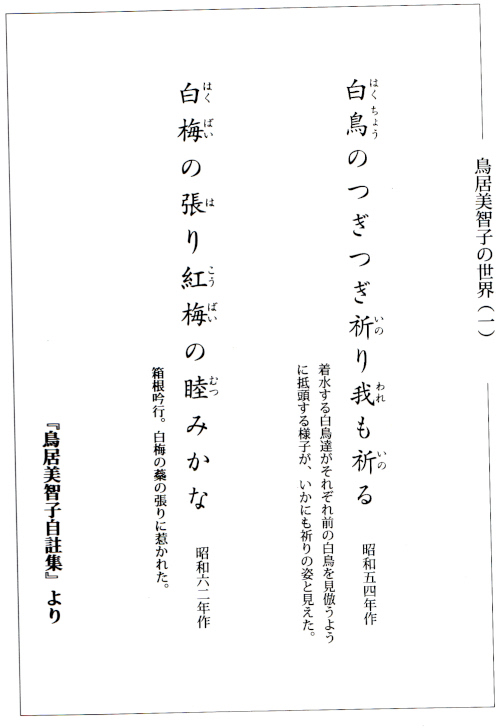 鳥居美智子の世界(一)
白鳥のつぎつぎ祈り我も祈る
はくちょう
いの
われ
いの
昭和五四年作
着水する白鳥達がそれぞれ前の白鳥を見倣うよう
に抵頭する様子が、いかにも祈りの姿と見えた。
白梅の張り紅梅の睦みかな
はくばい
は
こうばい
むつ
昭和六二年作
箱根吟行。白梅の蘂の張りに惹かれた。
『鳥居美智子自註集』より